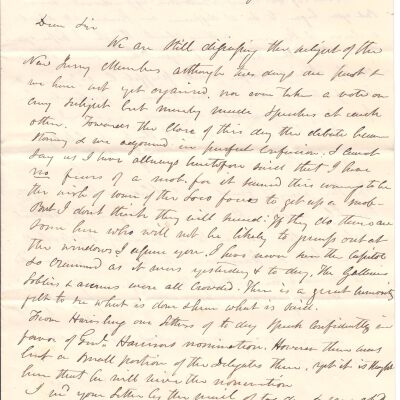 Dear Sir
We are still digesting the subject of the
New Jersey Members although two days are past &
we have not yet organized, nor even taken a vote on
any subject but merely made speeches at each
other. Towards the close of this day the debate became
stormy & we adjourned in perfect confusion. I cannot
say as I have always heretofore said that I have
no fears of a mob. for it seemed this evening to be
the wish of some of the Loco focos to get up a mob-
But I don't think they will succeed. If they do there are
some here who will not be likely to jump out at
the windows I assure you. I have never seen the Capitol
so crammed as it was yesterday & to day, the Galleries
Lobbies & avenues were all crowded. There is a great curiosity
felt to see what is done & hear what is said.
From Harrisburg our letters of to day speak confidently in
favor of Genl. Harrisons nomination. However there was
but a small portion of the Delegates there, yet it is thought
here that he will receive the nomination
I recd your letter by the mail of to day &